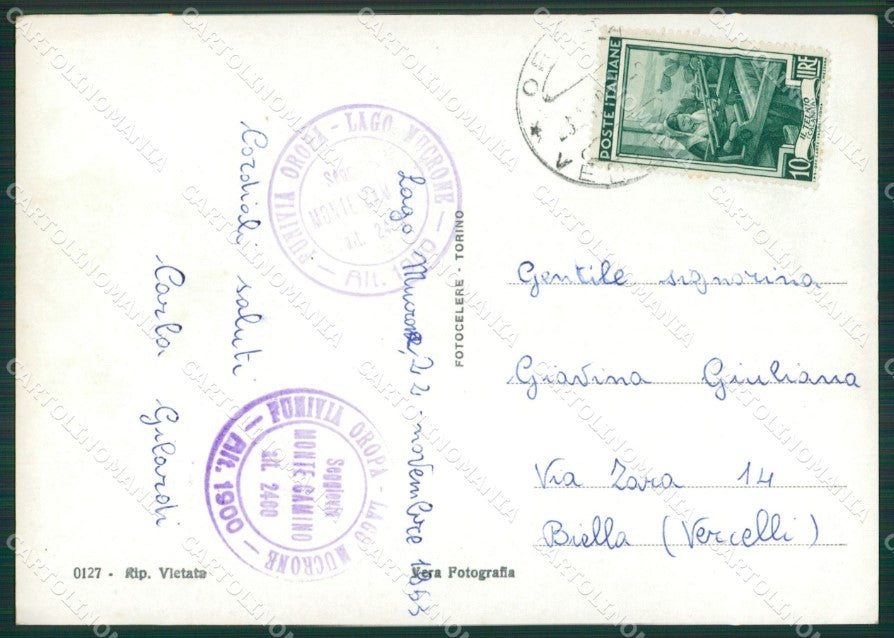 Lago Mucrone, 22 novembre 1953
Cordiali saluti
Carla Gilardi
FUNIVIA OROPA - LAGO MUCRONE - Alt. 1900 -
MONTE
FUNIVIA OROPA - LAGO MUCRONE - Alt. 1900 -
Seggiovia
MONTE CAMINO
alt. 2400
FOTOCELERE - TORINO
POSTE ITALIANE
10 LIRE
Gentile signorina
Giavina Giuliana
Via Zara 14
Biella (Vercelli)
0127 - Rip. Vietata
Vera Fotografia
CARTOLINOMANIA